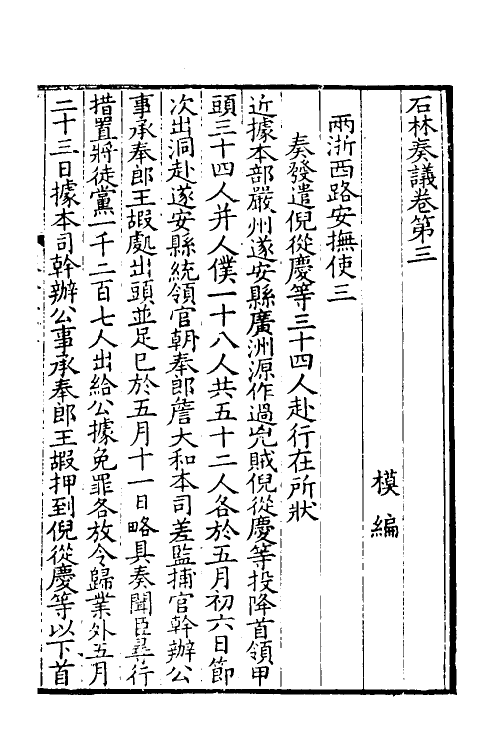 石林奏議卷第三
模編
兩浙西路安撫使三
奏發遣倪從慶等三十四人赴行在所狀
近據本部嚴州遂安縣廣洲源作過兇賊倪從慶等投降首領甲
頭三十四人并人僕一十八人共五十二人各於五月初六日節
次出洞赴遂安縣統領官朝奉郎詹大和本司差監捕官幹辦公
事承奉郎王嘏處出頭並足已於五月十一日略具奏聞臣尋行
措置將徒黨一千二百七人出給公據免罪各放令歸業外五月
二十三日據本司幹辦公事承奉郎王嘏押到倪從慶等以下首